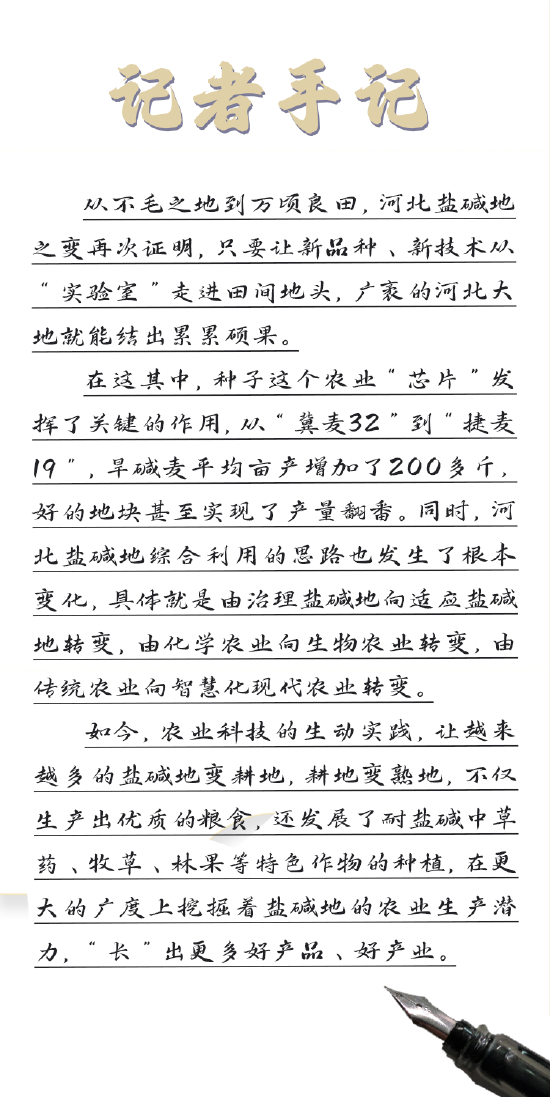 记者手记
从不毛之地到万顷良田，河北盐碱地
之变再次证明，只要让新品种、新技术从
“实验室”走进田间地头，广袤的河北大
地就能结出累累硕果。
在这其中，种子这个农业“芯片”发
挥了关键的作用，从“冀麦32”到“捷麦
19”，旱碱麦平均亩产增加了200多斤，
好的地块甚至实现了产量翻番。同时，河
北盐碱地综合利用的思路也发生了根本
变化，具体就是由治理盐碱地向适应盐碱
地转变，由化学农业向生物农业转变，由
传统农业向智慧化现代农业转变。
如今，农业科技的生动实践，让越来
越多的盐碱地变耕地，耕地变熟地，不仅
生产出优质的粮食，还发展了耐盐碱中草
药、牧草、林果等特色作物的种植，在更
大的广度上挖掘着盐碱地的农业生产潜
力，“长”出更多好产品、好产业。